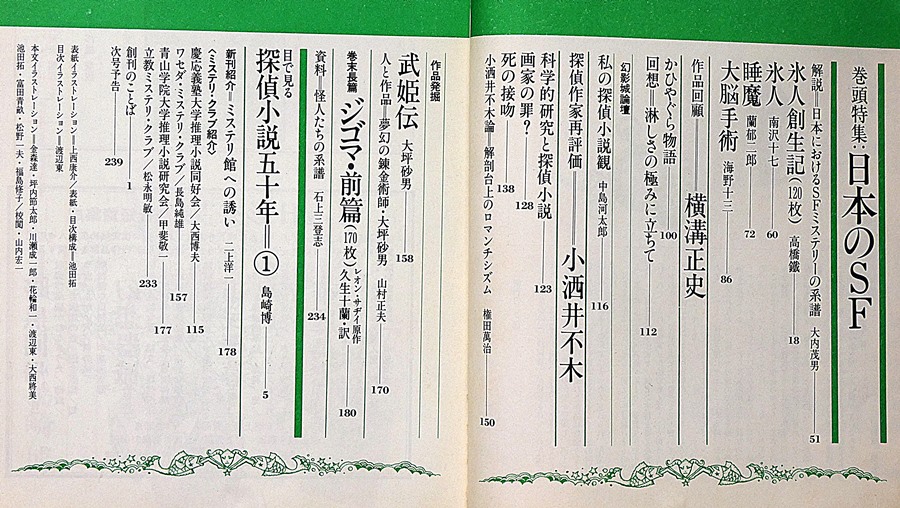 巻頭特集:日本のSF
解説=日本におけるSFミステリーの系譜 大内茂男 51
氷人創生記(120枚) 高橋鐵 18
氷人 南沢十七 60
睡魔 蘭郁二郎 72
大脳手術 海野十三 86
作品回顧 横溝正史
かひやぐら物語 100
回想=淋しさの極みに立ちて 112
幻影城論壇
私の探偵小説観 中島河太郎 116
探偵作家再評価 小酒井不木
科学的研究と探偵小説 123
画家の罪? 128
死の接吻 138
小酒井不木論=解剖台上のロマンチシズム 権田萬治 150
作品発掘
武姫伝 大坪砂男 158
人と作品=夢幻の錬金術師・大坪砂男 山村正夫 170
巻末長篇 ジゴマ・前篇(170枚) レオン・サヂイ原作 久生十蘭・訳 180
資料=怪人たちの系譜 石上三登志 234
目で見る
探偵小説五十年=① 島崎博 5
新刊紹介=ミステリ館への誘い 二上洋一 178
〈ミステリ・クラブ紹介〉
慶応義塾大学推理小説同好会/大西博夫 115
ワセダ・ミステリ・クラブ/長島純雄 157
青山学院大学推理小説研究会/甲斐敬一 177
立教ミステリ・クラブ/松永明敏 233
創刊のことば 1
次号予告 239
表紙イラストレーション=上西康介/表紙・目次構成=池田拓
目次イラストレーション=渡辺東
本文イラストレーション=金森達・坪内節太郎・川瀬成一郎・花輪和一・渡辺東・大西将美
池田拓・富田青畝・松野一夫・福島修子/校閲・山内宏一